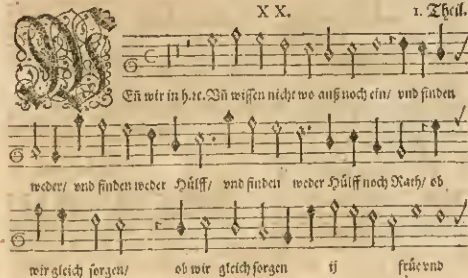 XX. 1. Theil.
WEñ wir in h.ꝛc. Vñ wissen nicht wo auß noch ein/ vnd finden
weder/ vnd finden weder Hülff/ vnd finden weder Hülff noch Rath/ ob
wir gleich sorgen/ ob wir gleich sorgen ij früe vnd